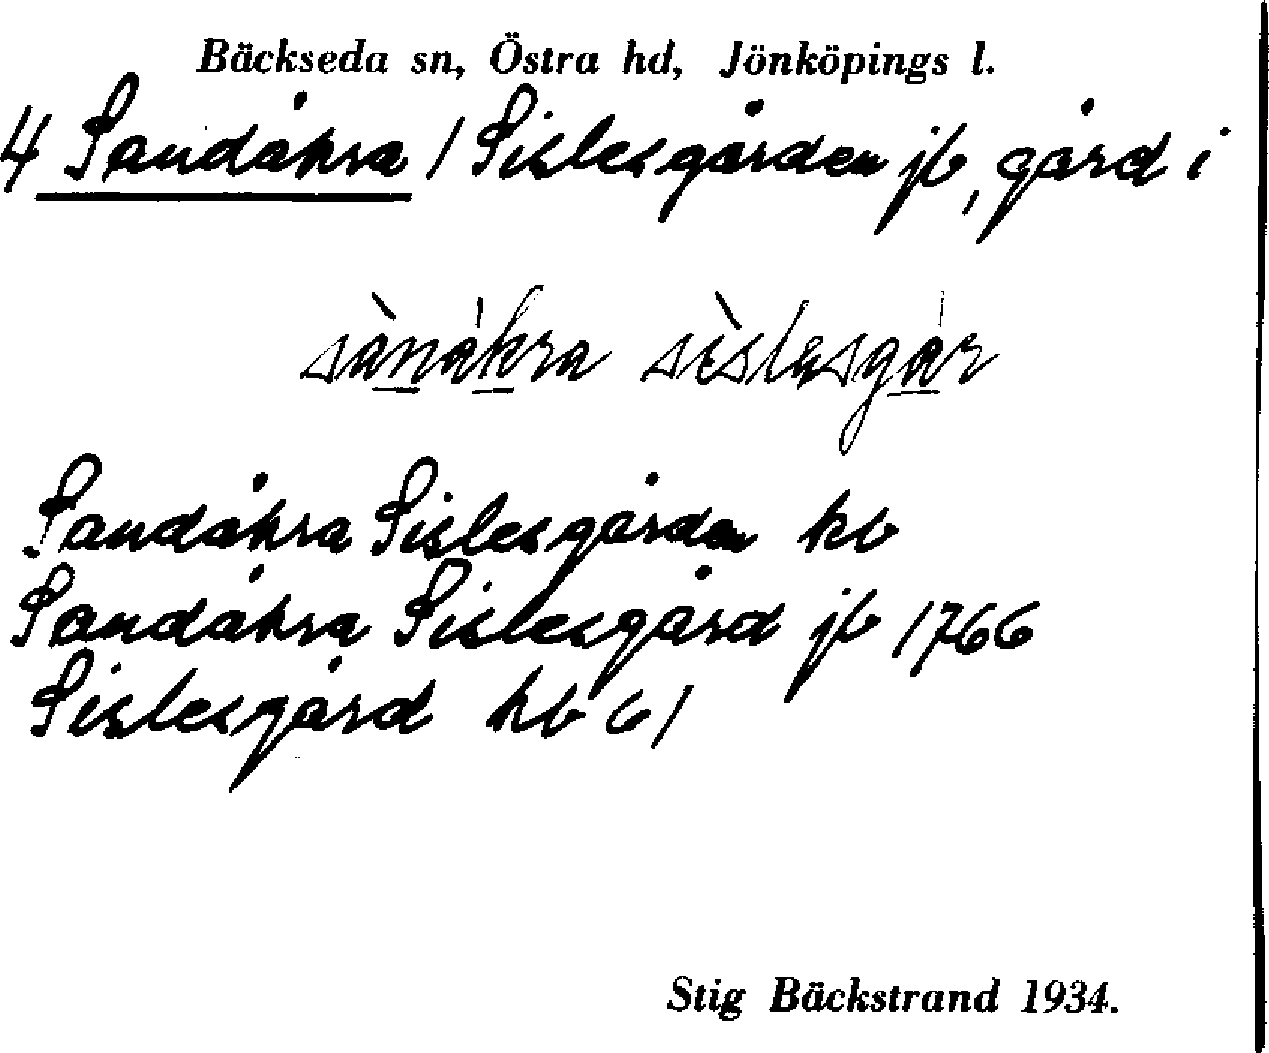 Bäckseda sn, Östra hd, Jönköpings l.
4 Sandåkra / Sislesgården jb, gård i
sànákra sìslesgàr
Sandåkra Sislesgården hb
Sandåkra Sislesgård jb 1766
Sislesgård hb 61
Stig Bäckstrand 1934.